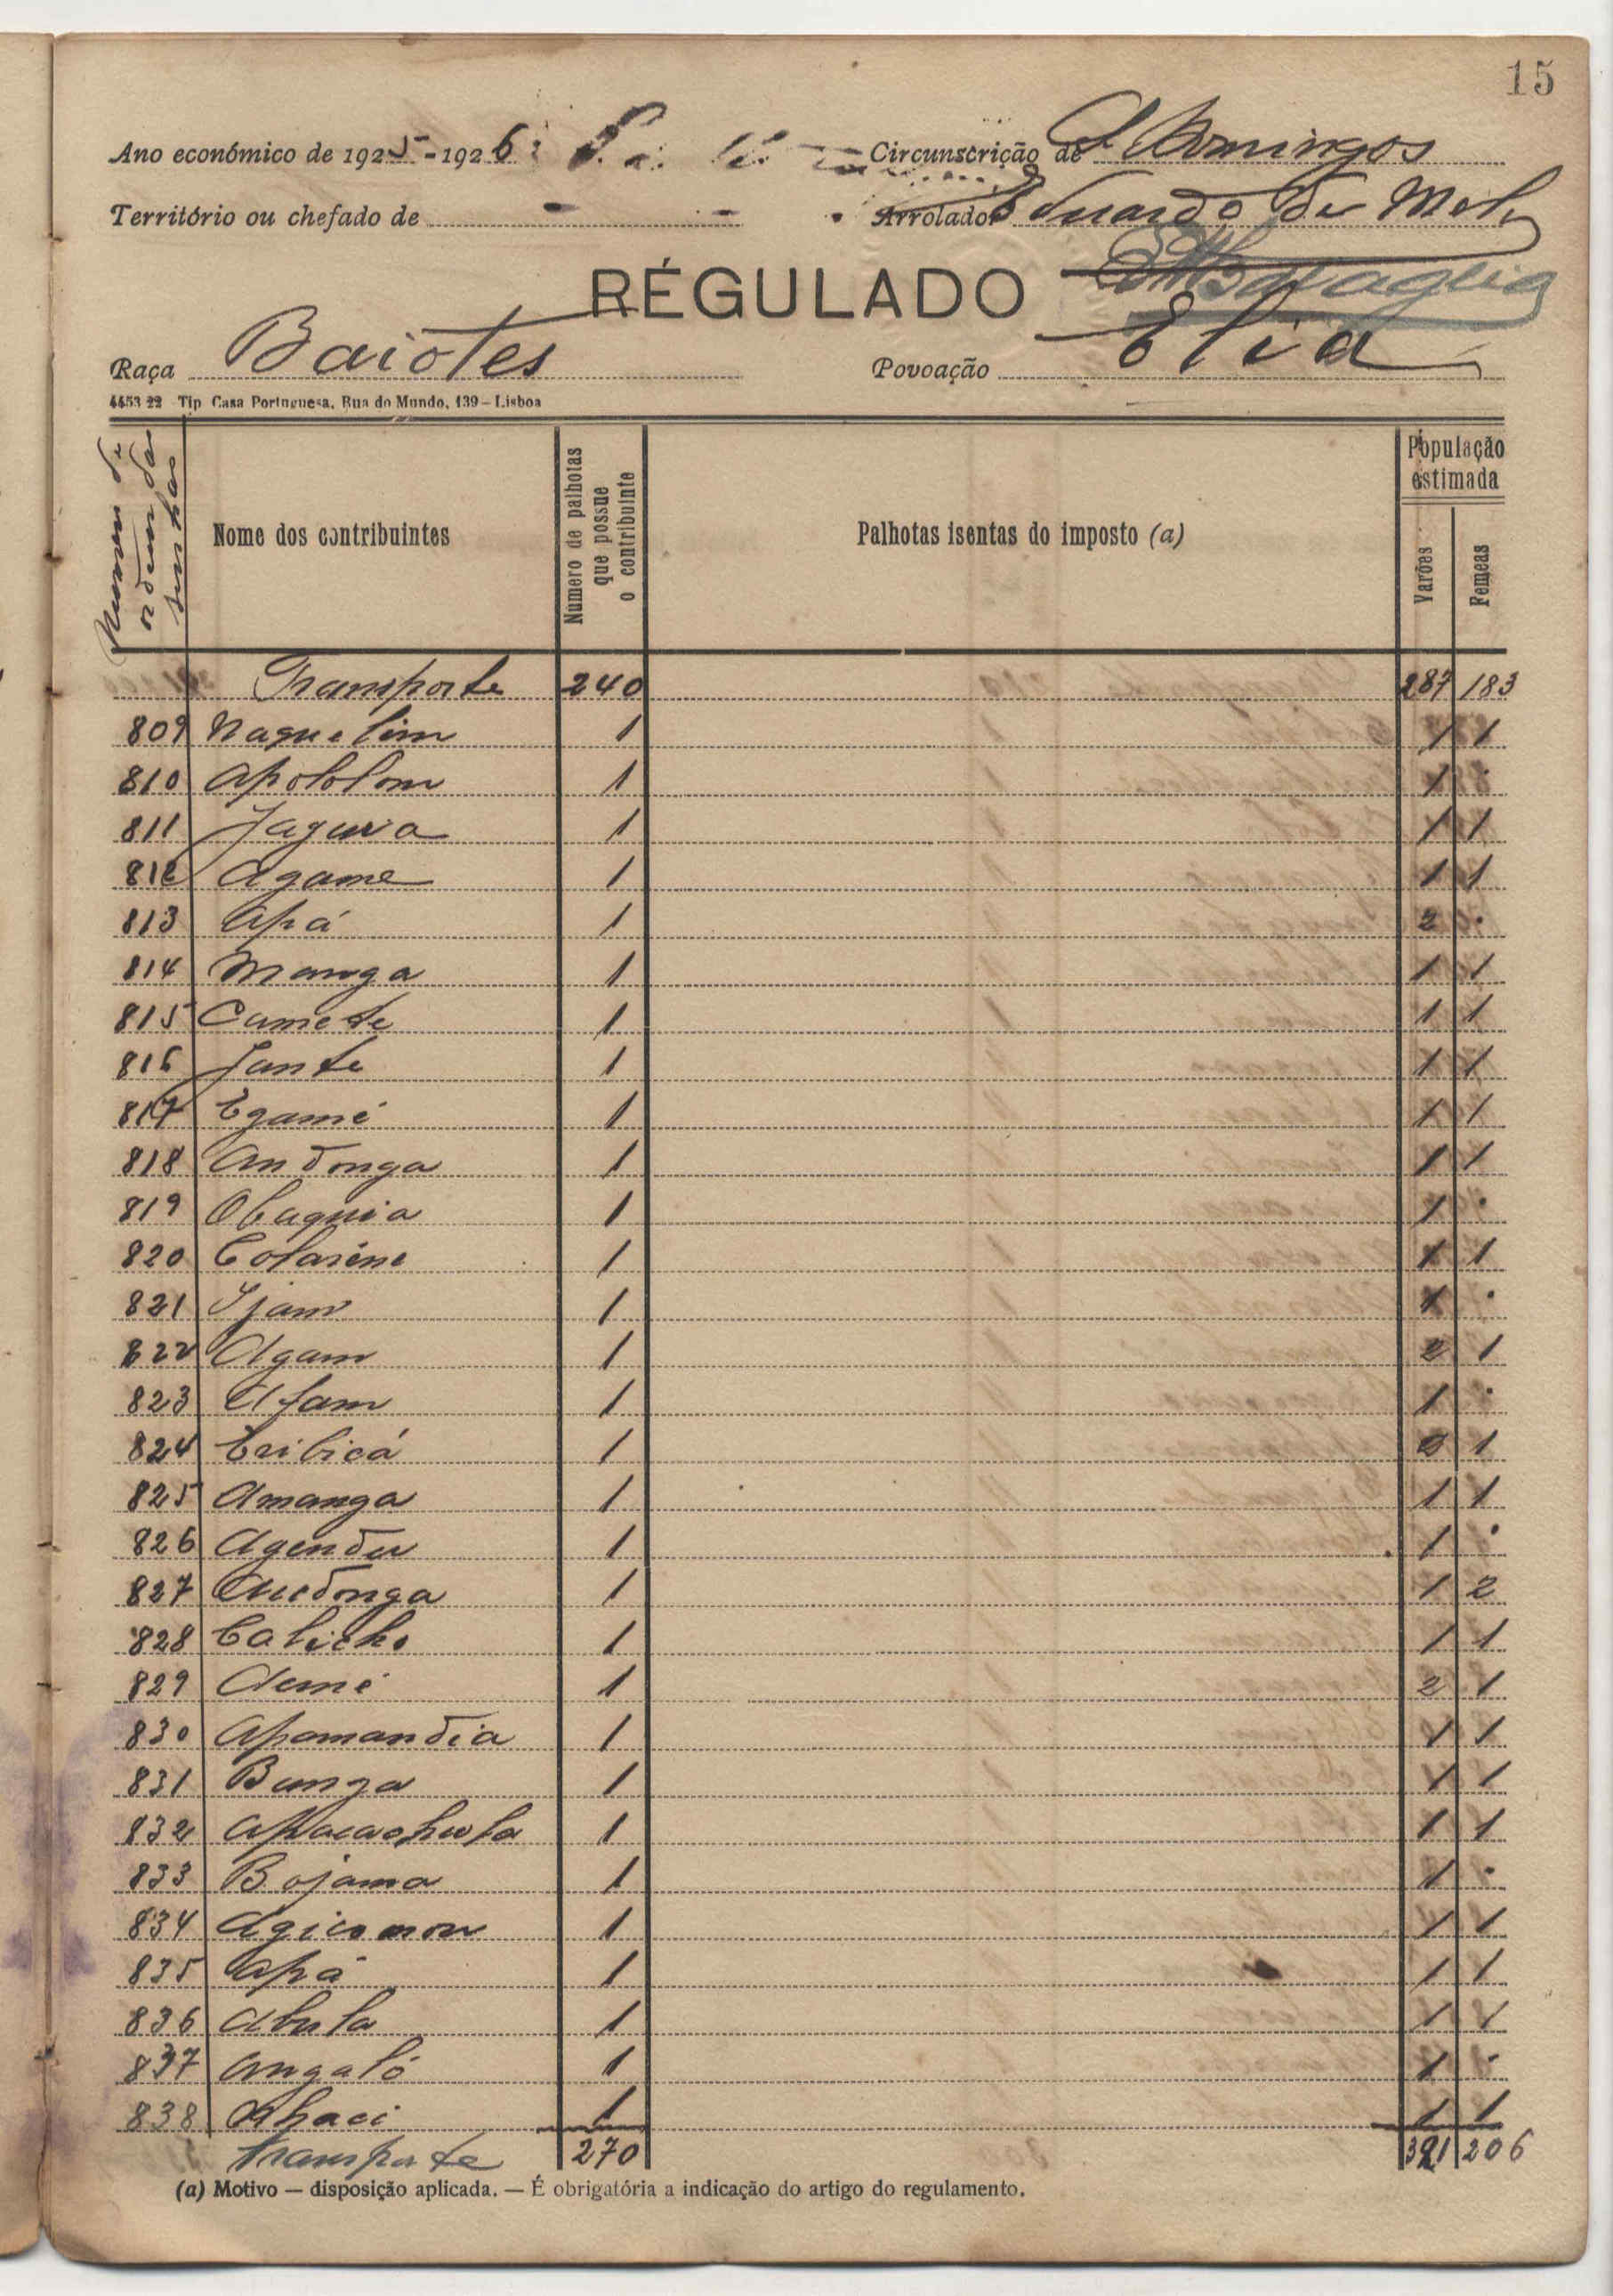 15
Ano económico de 1925-1926 Circunscrição de S. Domingos
Território ou chefado de Arrolador Eduardo de Melo
RÉGULADO
Raça Baiotes Povoação Elia
4453 22 Tip Casa Portuguesa, Rua do Mundo, 139 – Lisboa
Numero de ordem das senhas
Nome dos contribuintes
Número de palhotas que possue o contribuinte
Palhotas isentas do imposto (a)
População estimada
Varões Femeas
Transporte 240 287 183
809 Naquelim 1 1 1
810 Apololom 1 1 .
811 Jagura 1 1 1
812 Agame 1 1 1
813 Apá 1 2 .
814 Manga 1 1 1
815 Camete 1 1 1
816 Jante 1 1 1
817 Egamé 1 1 1
818 Andonga 1 1 1
819 Obaquia 1 1 .
820 Colaréne 1 1 1
821 Ijam 1 1 .
822 Agam 1 2 1
823 Afam 1 1 .
824 Eribicá 1 2 1
825 Amanga 1 1 1
826 Agendu 1 1 .
827 1 1 2
828 Caliche 1 1 1
829 1 2 1
830 Apamandia 1 1 1
831 Bunga 1 1 1
832 1 1 1
833 Bojama 1 1 .
834 1 1 1
835 Apá 1 1 1
836 Abula 1 1 1
837 Angaló 1 1 .
838 1 1 1
Transporte 270 321 206
(a) Motivo — disposição aplicada. — É obrigatória a indicação do artigo do regulamento.